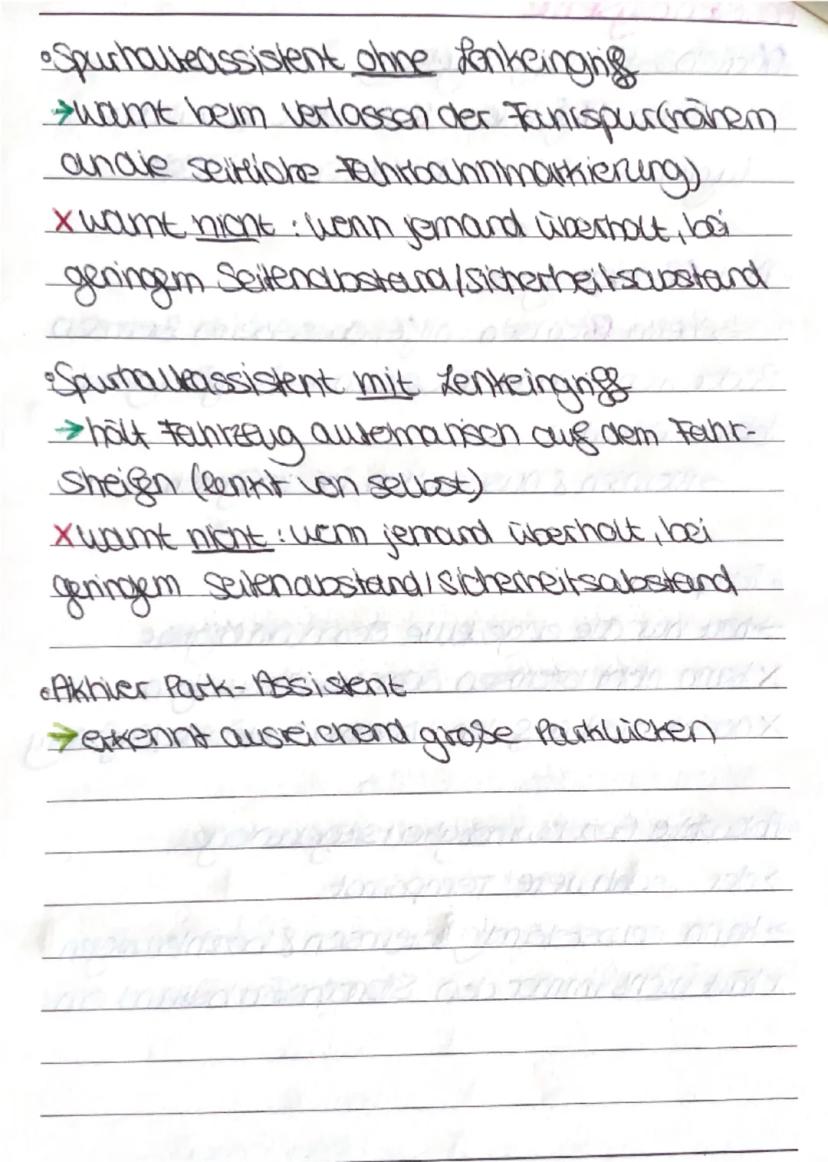 • Spurhalteassistent ohne Lenkeingriff
→ warnt beim Verlassen der Fahrspur (nähern
an die seitliche Fahrbahnmarkierung)
x warnt nicht : wenn jemand überholt, bei
geringem Seitenabstand/Sicherheitsabstand
• Spurhalteassistent mit Lenkeingriff
→ hält Fahrzeug automatisch auf dem Fahr-
streifen (lenkt von selbst)
x warnt nicht : wenn jemand überholt, bei
geringem Seitenabstand/Sicherheitsabstand
• Aktiver Park-Assistent
→ erkennt ausreichend große Parklücken